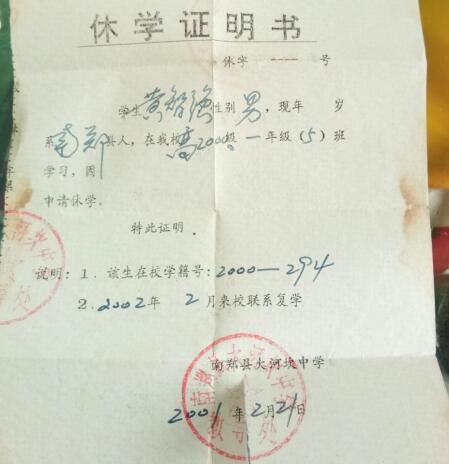 休学证明书
休字 ---- 号
学生黄智强性别男，现年 岁
系南郑县人，在我校高2000级一年级（5）班
学习，因
申请休学。
特此证明．
说明：1．该生在校学籍号：2000—294
2．2002年 2月来校联系复学
南郑县大河坎中学
2001年2月21日
教导处